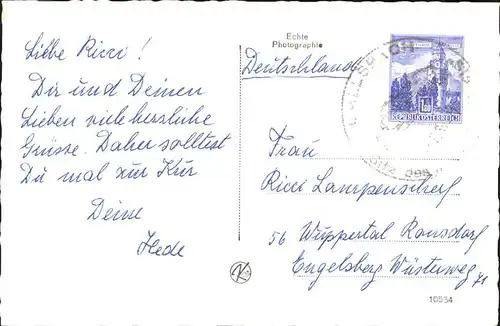 Liebe Ricci!
Dir und Deinen
Lieben viele herzliche
Grüsse. Daher solltest
Du mal zur Kur
Deine
Hede
Echte
Photographie
Deutschland
REPUBLIK ÖSTERREICH
Frau
Ricci Lampenscherf
56 Wuppertal Ronsdorf
Engelsberg Wüsterweg 71
10534